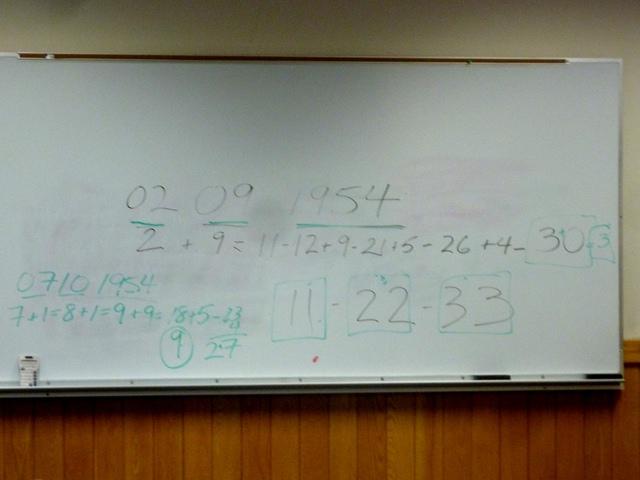 02 09 1954
2 + 9 = 11-12+9-21+5-26+4-30=3
0710 1954
7+1=8+1=9+9=18+5-23
9 27
11 - 22 - 33